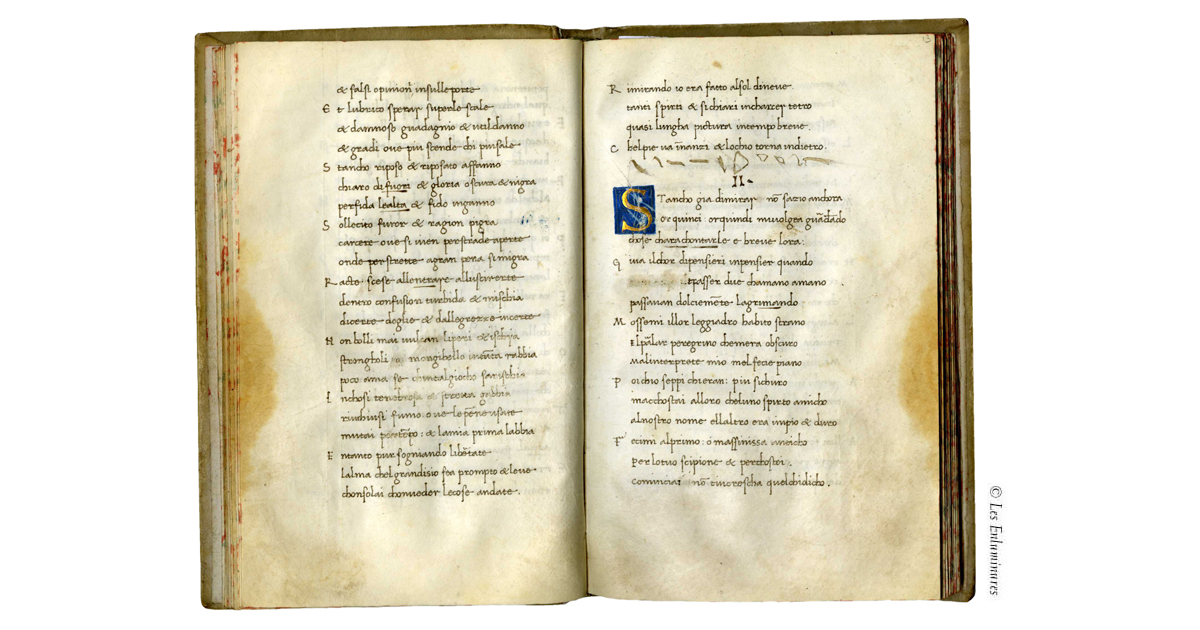 & falsi opinioñ insulleporte
E t lubrico sperar superle scale
& dannoso guadagnio & util danno
& gradi ove piu scende chi piu sale
S tancho riposo & riposato affanno
chiaro disnori & gloria oscura & nigra
perfida lealta & fido inganno
S ollecito furor & ragion pigra
carcere ove si vien perstrade aperte
onde perstrette agran pena si migra
R acte scese allentrare alluscir erte
dentro confusion turbida & mischia
di certe doglie & dallegrezze incerte
N on bolli mai vulcan lipari & ischia
strongholi mongibello rabbia
poco ama se
I nchosi tenebrosa & strecta gabbia
rinchiusi fumo: ove le penne usate
mutai & la mia prima labbia
E ntanto pur sogniando libertate
lalma chel grandisio fea prompto & leve
chonsolai chonveder lecose andate.
13
R imirando io era facto alsol dineve
tanti spirti & si chiari incharcer tetro
quasi lungha pictura intempo breve.
C helpie va inanzi & lochio torna indietro.
II.
S Tancho gia dimirar nõ sazio anchora
or quinci or quindi mi volgea
chose charachontarle e breve lora:
G iva ilchor dipensieri inpensier quando
passer due chamano amano
passavan dolcemẽte lagrimando
M ossemi illor leggiadro habito strano
Elpãlar peregrino chemera obscuro
Malinterprete mio mel fecie piano
P oichio seppi chieran: piu sichuro
macchostai alloro cheluno spirto amicho
alnostro nome ellaltro era impio & duro
F ecimi alprimo: o massinissa anticho
Perlotuo scipione &
Cominciai nõ tincrescha quelchidicho.
© Les Enluminures